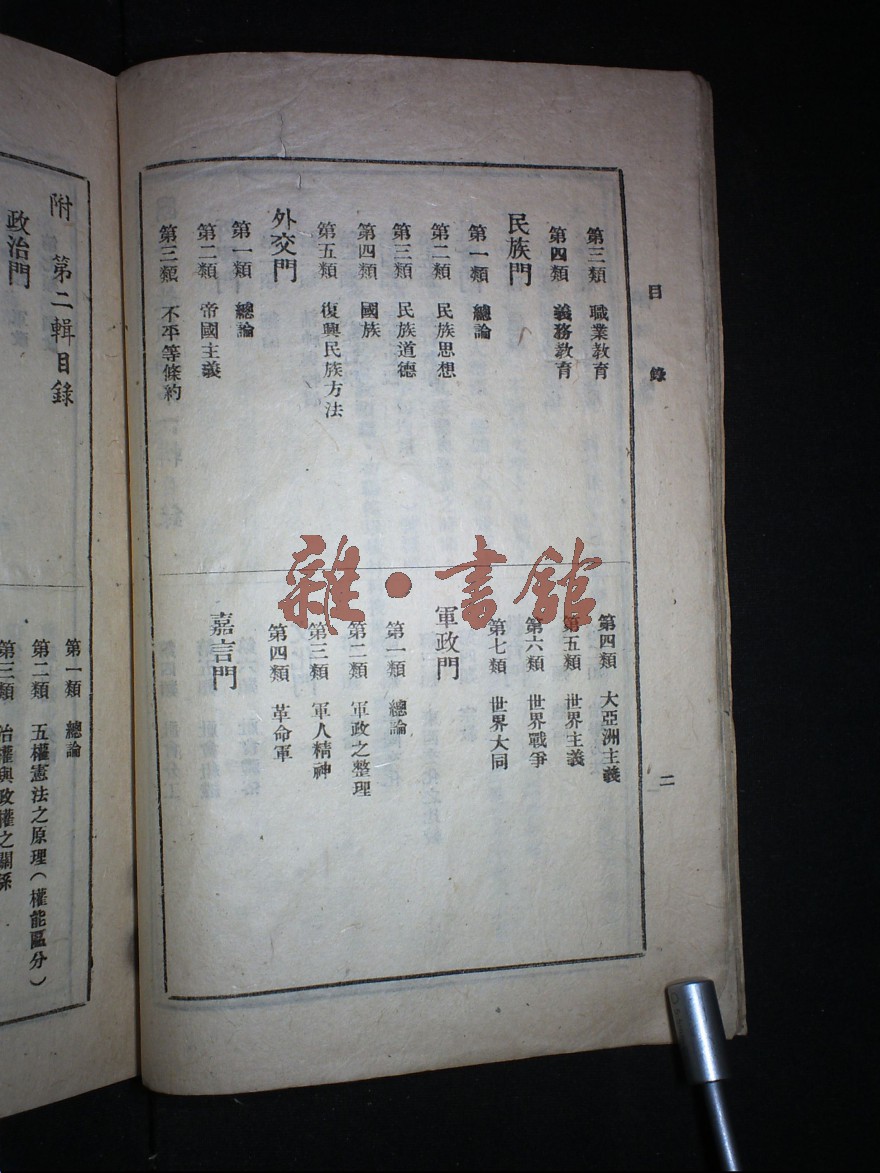 目錄
二
第三類 職業教育
第四類 義務教育
民族門
第一類 總論
第二類 民族思想
第三類 民族道德
第四類 國族
第五類 復興民族方法
外交門
第一類 總論
第二類 帝國主義
第三類 不平等條約
第四類 大亞洲主義
第五類 世界主義
第六類 世界戰爭
第七類 世界大同
軍政門
第一類 總論
第二類 軍政之整理
第三類 軍人精神
第四類 革命軍
嘉言門
附 第二輯目錄
政治門
第一類 總論
第二類 五權憲法之原理(權能區分)
第三類 治權與政權之關係
雜·書館